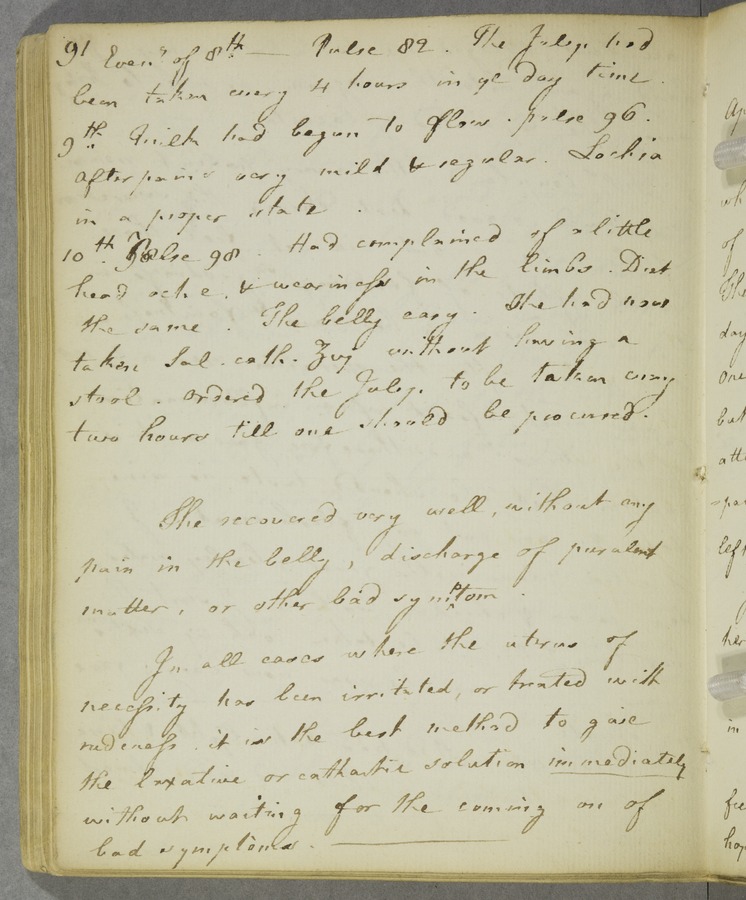 91 Even.g of 8th — Pulse 82. The Julep had
been taken every 4 hours in ye day time.
9th. Milk had begun to flow. pulse 96.
after pains very mild & regular. Lochia
in a proper state.
10th. Pulse 98. Had complained of a little
head ache, & weariness in the limbs. Diet
the same. The belly easy. She had now
taken Sal. cath. ʒvij without having a
stool. ordered the Julep. to be taken every
two hours till one should be procured.
She recovered very well, without any
pain in the belly, discharge of purulent
matter, or other bad symptom.
In all cases where the uterus of
necessity has been irritated, or treated with
rudeness it is the best method to give
the laxative or cathartic solution immediately
without waiting for the coming on of
bad symptoms. —